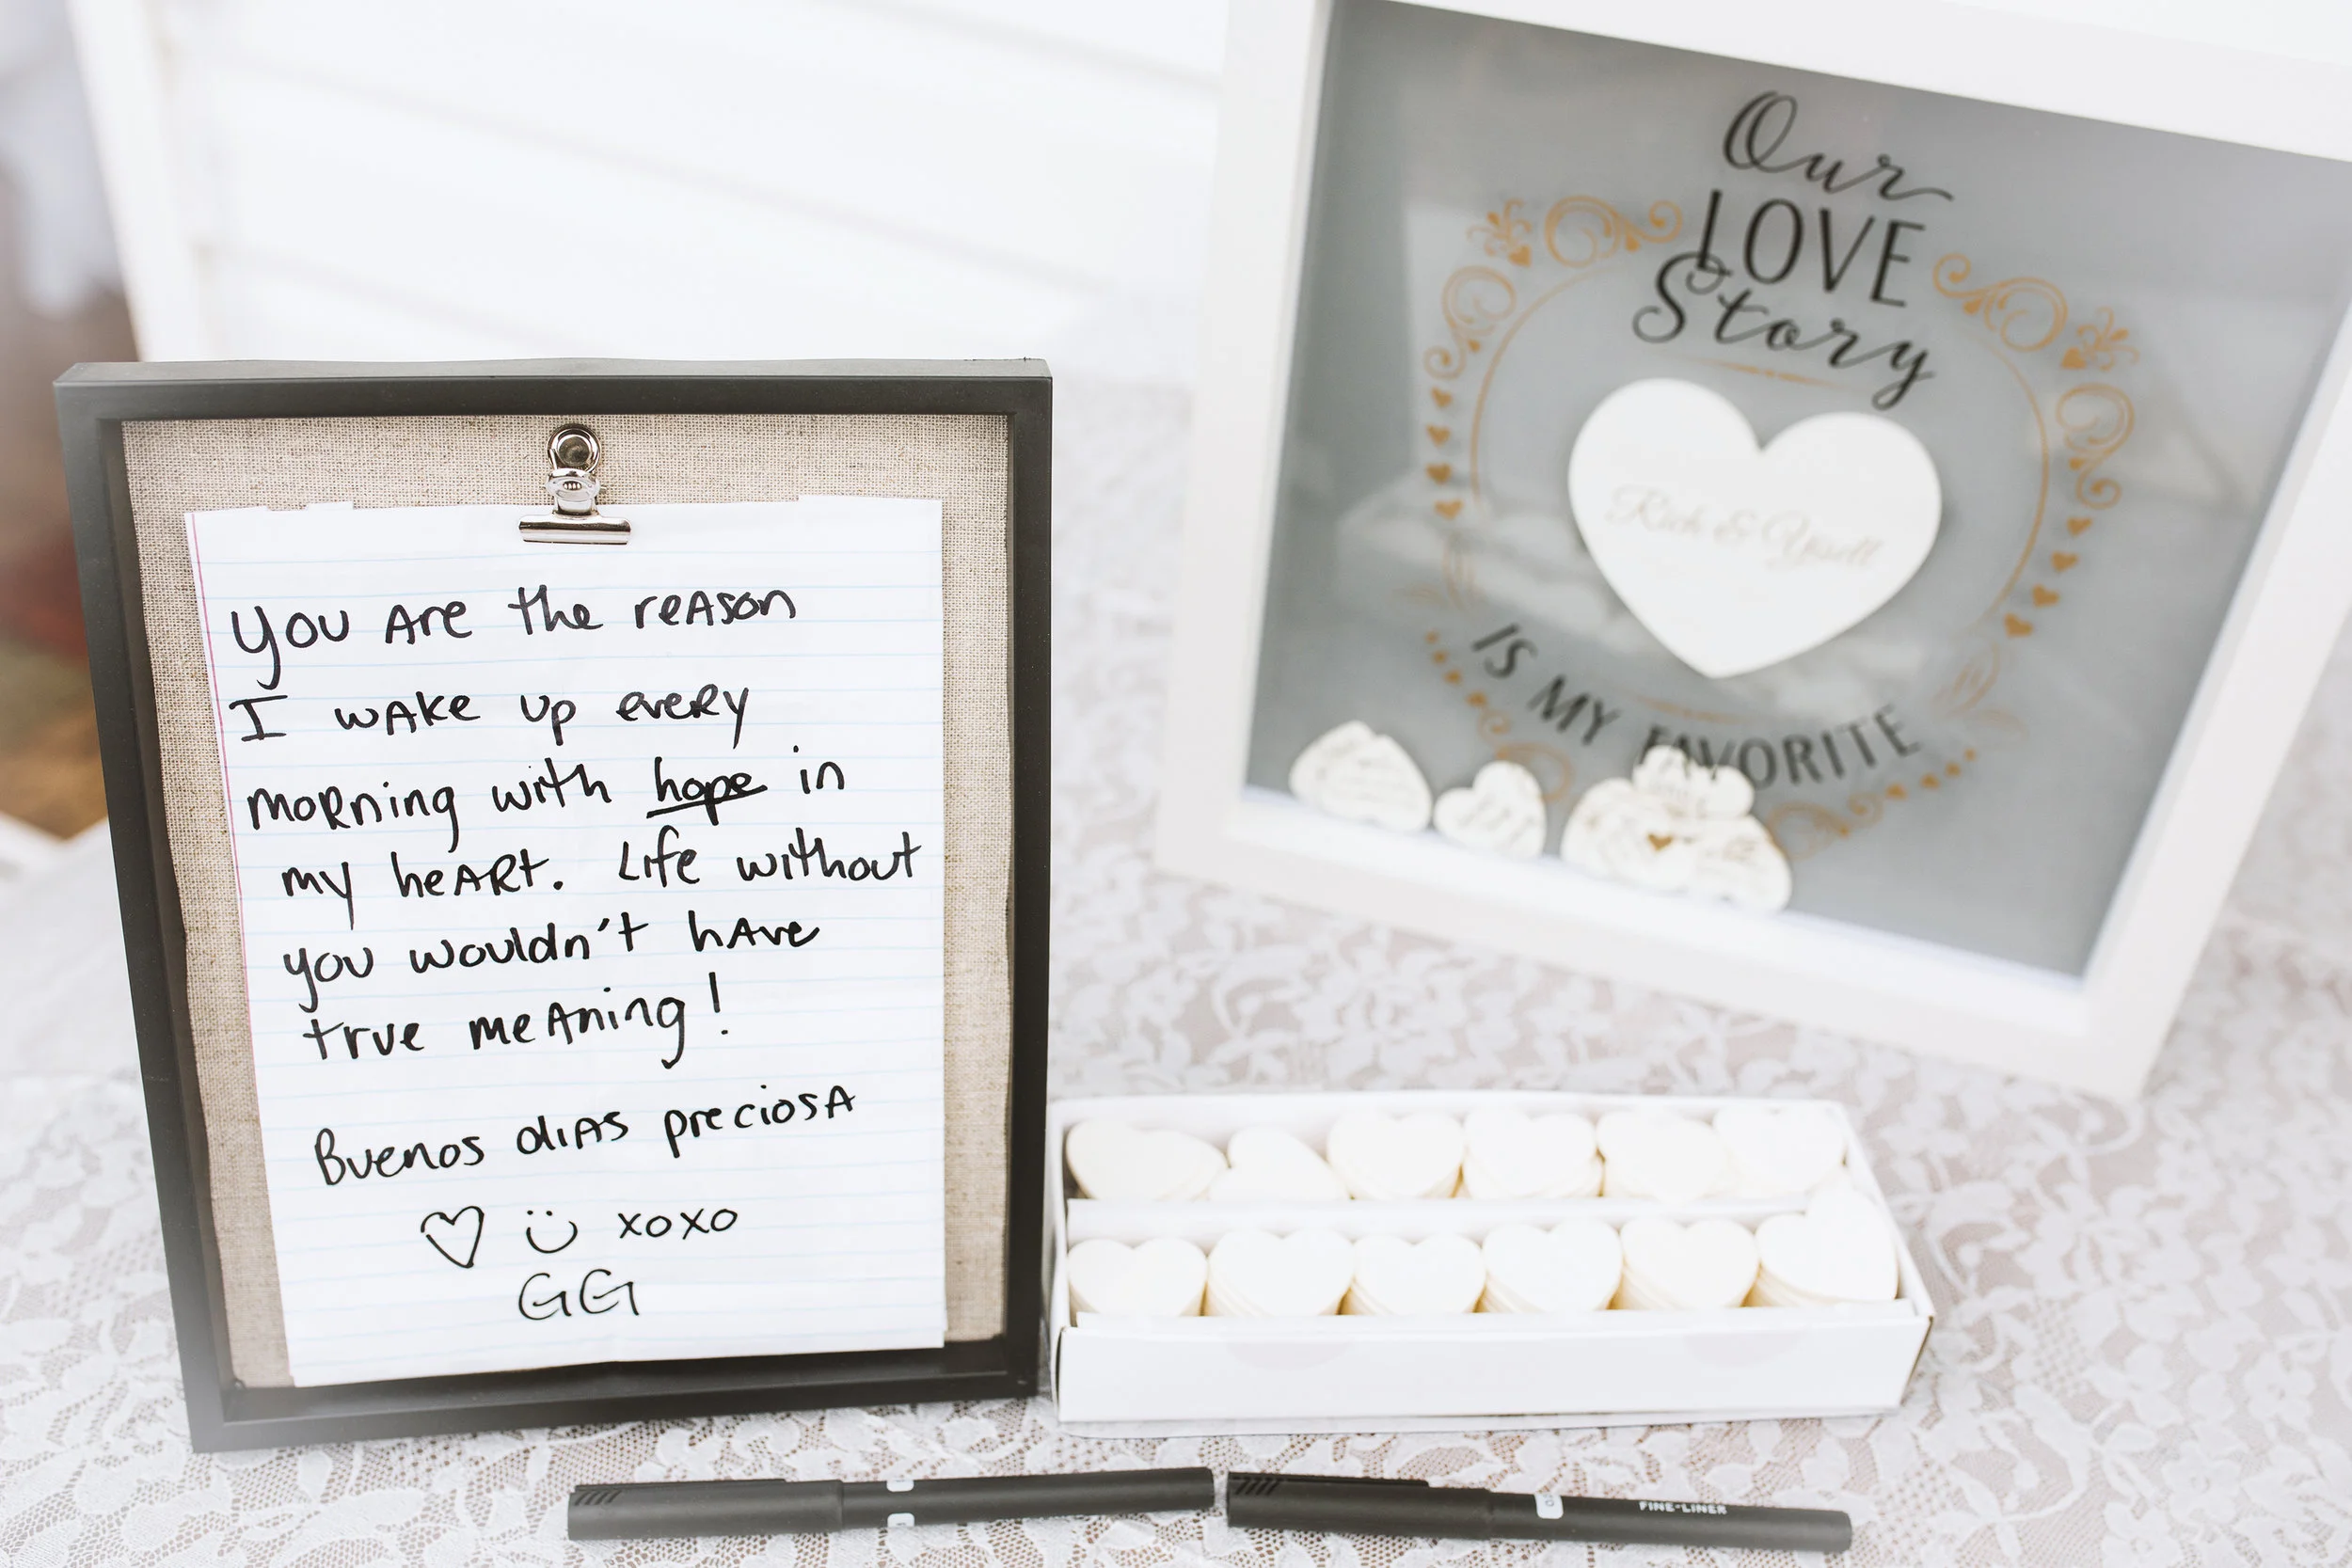 You are the reason
I wake up every
morning with hope in
my heart. Life without
you wouldn't have
true meaning!
Buenos dias preciosa
xoxo
GG
Our
LOVE
Story
Rich &
IS MY FAVORITE
FINE-LINER